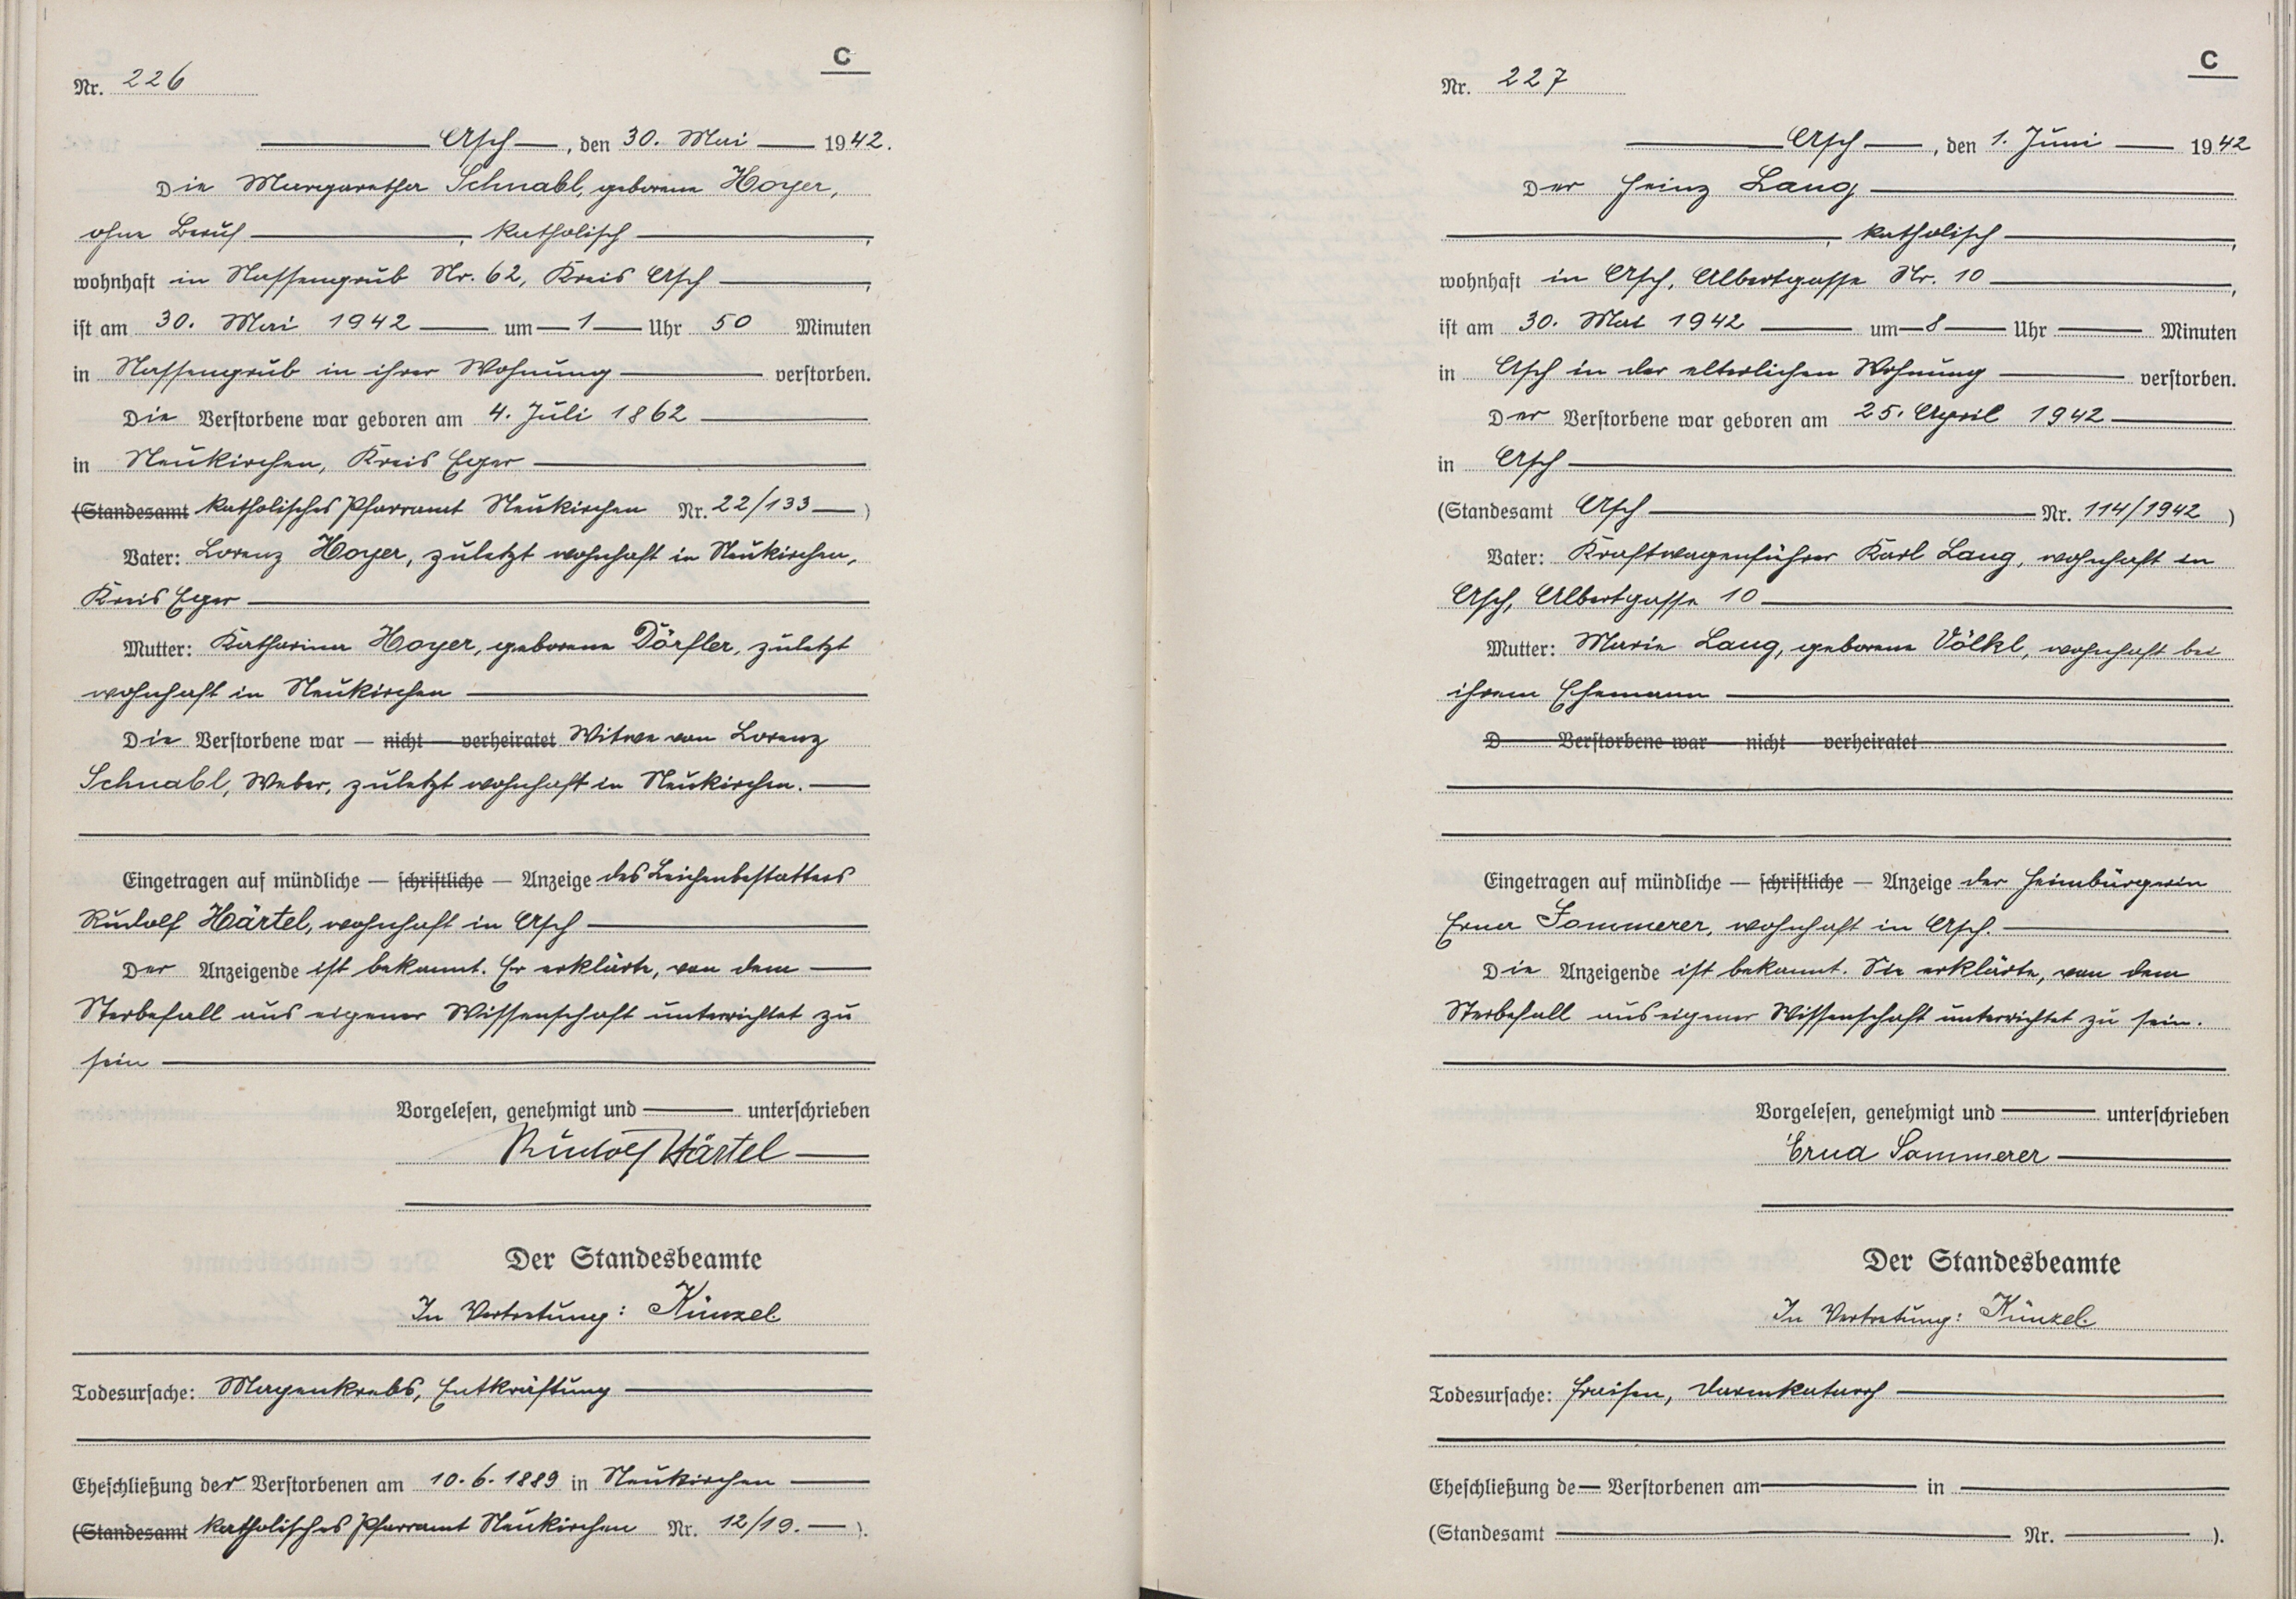 C
Nr. 226
Asch, den 30. Mai 1942.
Die Margaretha Schnabl, geborene Hoyer,
ohne Beruf, katholisch,
wohnhaft in Nassengrub Nr. 62, Kreis Asch,
ist am 30. Mai 1942 um 1 Uhr 50 Minuten
in Nassengrub in ihrer Wohnung verstorben.
Die Verstorbene war geboren am 4. Juli 1862
in Neukirchen, Kreis Eger
(Standesamt katholisches Pfarramt Neukirchen Nr. 22/133)
Vater: Lorenz Hoyer, zuletzt wohnhaft in Neukirchen,
Kreis Eger
Mutter: Katharina Hoyer, geborene Dörfler, zuletzt
wohnhaft in Neukirchen
Die Verstorbene war — nicht — verheiratet Witwe von Lorenz
Schnabl, Weber, zuletzt wohnhaft in Neukirchen.
Eingetragen auf mündliche — schriftliche — Anzeige des Leichenbestatters
Rudolf Härtel, wohnhaft in Asch
Der Anzeigende ist bekannt. Er erklärte, von dem
Sterbefall aus eigener Wissenschaft unterrichtet zu
sein
Vorgelesen, genehmigt und unterschrieben
Rudolf Härtel
Der Standesbeamte
In Vertretung: Künzel
Todesursache: Magenkrebs, Entkräftung
Eheschließung der Verstorbenen am 10.6.1889 in Neukirchen
(Standesamt katholisches Pfarramt Neukirchen Nr. 12/19.).
C
Nr. 227
Asch, den 1. Juni 1942
Der Heinz Lang
, katholisch,
wohnhaft in Asch, Albertgasse Nr. 10,
ist am 30. Mai 1942 um 8 Uhr Minuten
in Asch in der elterlichen Wohnung verstorben.
Der Verstorbene war geboren am 25. April 1942
in Asch
(Standesamt Asch Nr. 114/1942)
Vater: Kraftwagenführer Karl Lang, wohnhaft in
Asch, Albertgasse 10
Mutter: Marie Lang, geborene Völkl, wohnhaft bei
ihrem Ehemann
D Verstorbene war — nicht — verheiratet
Eingetragen auf mündliche — schriftliche — Anzeige der Heimbürgerin
Erna Sommerer, wohnhaft in Asch.
Die Anzeigende ist bekannt. Sie erklärte, von dem
Sterbefall aus eigener Wissenschaft unterrichtet zu sein.
Vorgelesen, genehmigt und unterschrieben
Erna Sommerer
Der Standesbeamte
In Vertretung: Künzel.
Todesursache: Fraisen, Darmkatarrh
Eheschließung de— Verstorbenen am in
(Standesamt Nr. ).